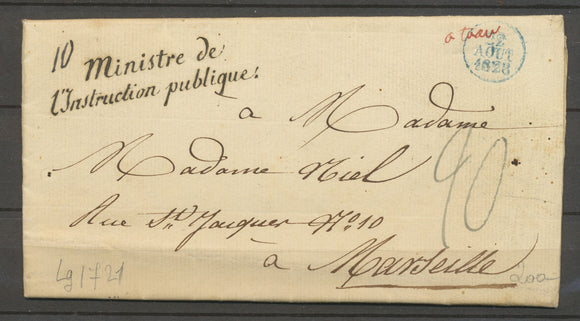 10 Ministre de
l'Instruction publique.
a taxer
12
AOUT
1828
à Madame
Madame Niel
Rue St Jacques No. 10
à Marseille
90
Lg1721
200